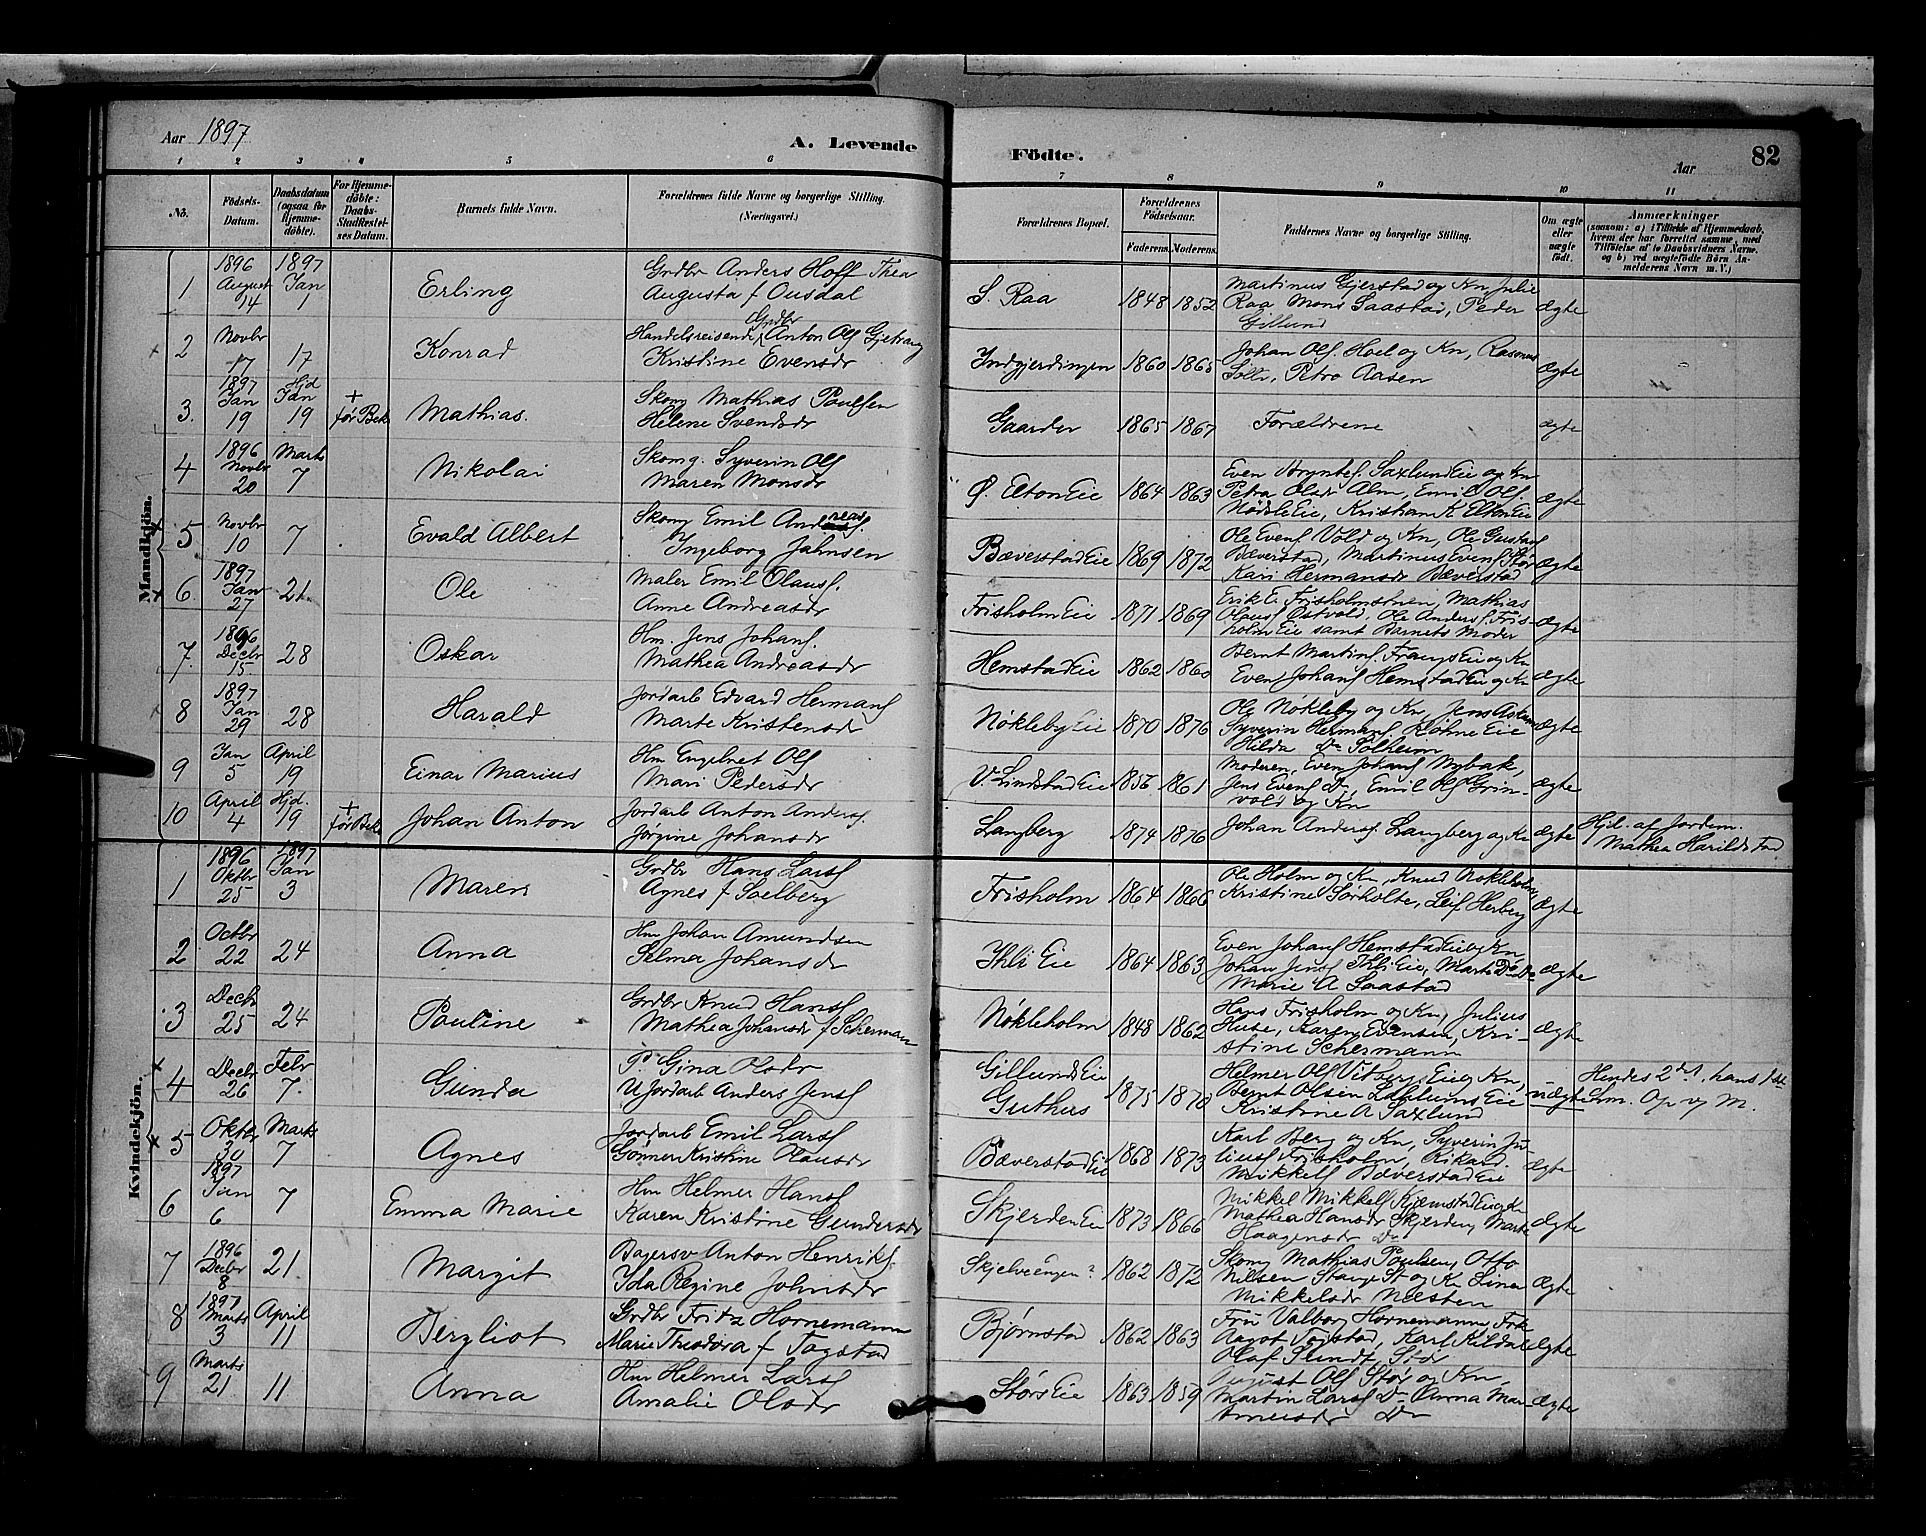 Aar 1897
A. Levende Födte.
Aar
82
1 2 3 4 5 6 7 8 9 10 11
No.
Födsels-Datum.
Daabsdatum (ogsaa for Hjemmedöbte).
For Hjemmedöbte: Daabs-Stadfæstelses Datum.
Barnets fulde Navn.
Forældrenes fulde Navne og borgerlige Stilling. (Næringsvei.)
Forældrenes Bopæl.
Forældrenes Födselsaar.
Faderens. Moderens.
Faddernes Navne og borgerlige Stilling.
Om ægte eller uægte födt.
Anmærkninger
(saasom: a) i Tilfælde af Hjemmedaab, hvem der har forrettet samme, med Tilföielse af to Daabsvidners Navne. og b) ved uægtefödte Börn Anmelderens Navn m. V.)
Mandkjön.
1 1896 August 14 1897 Jan 1 Erling
Grdbr Anders Hoff Thea
Augusta f Ousdal
S. Raa 1848 1852
Martinus Gjerstad og Kn Julie
Raa Mons Saastad, Peder
Gillund
ægte
2 Novbr 17 17 Konrad
Handelsreisende Grdbr Anton Ols Gjetvang
Kristine Evensdr
Indgjerdingen 1860 1865
Johan Ols. Hoel og Kn, Rasmus
Petra Aasen
ægte
3. 1897 Jan 19 Hjd Jan 19 + før Bek Mathias.
Skom Mathias Poulsen
Helene Svendsdr
Gaarder 1865 1867
Forældrene
ægte
4 1896 Novbr 20 Marts 7 Nikolai
Skomg. Syverin Ols
Maren Monsdr
Ø. Elton Eie 1864 1863
Even Bryntes. Saxlund Eie og Kn
Petra Olsdr Alm, Emil Ols.
Nødsle Eie, Kristian K Elton Eie
ægte
5 Novbr 10 7 Evald Albert
Skom Emil Andreas.
Ingeborg Jahnsen
Bæverstad Eie 1869 1872
Ole Evens Vold og Kn, Ole Gustavs
Bæverstad, Martinus Evens Stør
Kari Hermansdr Bæverstad
ægte
6. 1897 Jan 27 21. Ole
Maler Emil Olaus.
Anne Andreasdr
Frisholm Eie 1871 1869
Erik E. Frisholmstuen, Mathias
Olaus Østvold, Ole Anders. Fris-
holm Eie samt Barnets Moder
ægte
7. 1896 Decbr 15 28 Oskar
Hm. Jens Johans.
Mathea Andreasdr
Hemstad Eie 1862 1860
Bernt Martins. Frangs Eie og Kn
Even Johans Hemstad Eie og Kn
ægte
8 1897 Jan 29 28 Harald
Jordarb Edvard Hermans
Marte Kristensdr
Nøkleby Eie 1870 1876
Ole Nøkleby og Kn, Jens
Syverin Hermans. Køhne Eie
Hilda Do Solheim
ægte
9 Jan 5 April 19 Einar Marius
Hm Engebret Ols
Mari Pedersdr
V. Lindstad Eie 1856. 1861
Moderen, Even Johans Nybak,
Jens Evens Do, Emil Ols Grin-
vold og Kn
ægte
10 April 4 Hjd. 19 + før Bek Johan Anton
Jordarb Anton Anders.
Jørgine Johansdr
Langberg 1874 1876
Johan Anders. Langberg og Kn
ægte
Hjd. af Jordm.
Mathea Harildstad
Kvindekjön.
1 1896 Oktbr 25 1897 Jan 3 Maren
Grdbr Hans Lars
Agnes f Soelberg
Frisholm 1864 1866
Ole Holm og Kn, Knud Nøkleholm,
Kristine Sørholte, Leif Herberg
ægte
2 Octbr 22 24 Anna
Hm Johan Amundsen
Selma Johansdr
Ihli Eie 1864 1863
Even Johans Hemstad Eie og Kn
Johan Jens Ihli Eie, Marte
Marie A Saastad
ægte
3 Decbr 25 24 Pauline
Grdbr Knud Hans
Mathea Johansdr f Scherman
Nøkleholm 1848 1862
Hans Frisholm og Kn, Julius
Huse, Karen Evensen, Kri-
stine Schermann
ægte
4 Decbr 26 Febr 7. Gunda
P. Gina Olsdr
U Jordarb Anders Jens
Gillunds Eie
Guthus
1875 1870
Helmer Ols Vitberg Eie og Kn,
Bernt Olsen Eie
Kristine A Saxlund
uægte
Hendes 2det, hans 1ste
Lvm. Op og M.
5 Oktbr 30 Marts 7 Agnes
Jordarb Emil Lars
Gønner Kristine Olausdr
Bæverstad Eie 1868 1873
Karl Berg og Kn, Syverin Ju-
lius Frisholm, Rikard
Mikkels Bæverstad Eie
ægte
6 1897 Jan 6 7 Emma Marie
Hm Helmer Hans
Karen Kristine Gundersdr
Skjerden Eie 1873 1866
Mikkel Mikkels Kjemstad Eie og
Mathea Hansdr Skjerden, Marte
Haagensdr Do
ægte
7 1896 Decbr 8 21. Margit
Bagersv Anton Henriks.
Ida Regine Johnsdr
Skjelveengen? 1862 1872
Skom Mathias Poulsen, Otto
Nilsen Stange St og Kn Lina
Mikkelsdr Nilsten
ægte
8 1897 Marts 3 April 11 Bergliot
Grdbr Fritz Hornemann
Marie Theodora f Togstad
Bjørnstad 1862 1863
Fru Valborg Hornemann, Frk
Aagot Togstad, Karl Kildal
Olaf
ægte
9 Marts 21 11 Anna
Hm Helmer Lars
Amalie Olsdr
Størs Eie 1863 1859
August Ols Stør og Kn,
Martin Lars Do Anna Mar
Do
ægte